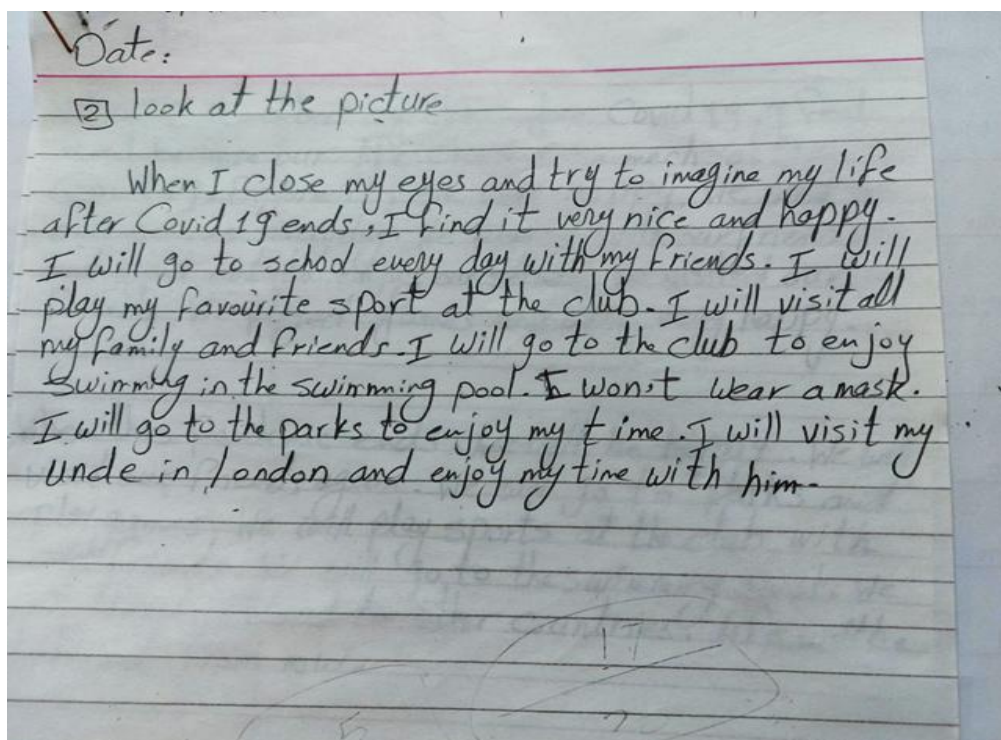 Date:
[2] look at the picture
When I close my eyes and try to imagine my life
after Covid 19 ends, I find it very nice and happy.
I will go to school every day with my friends. I will
play my favourite sport at the club. I will visit all
my family and friends. I will go to the club to enjoy
swimming in the swimming pool. I won't wear a mask.
I will go to the parks to enjoy my time. I will visit my
uncle in london and enjoy my time with him.